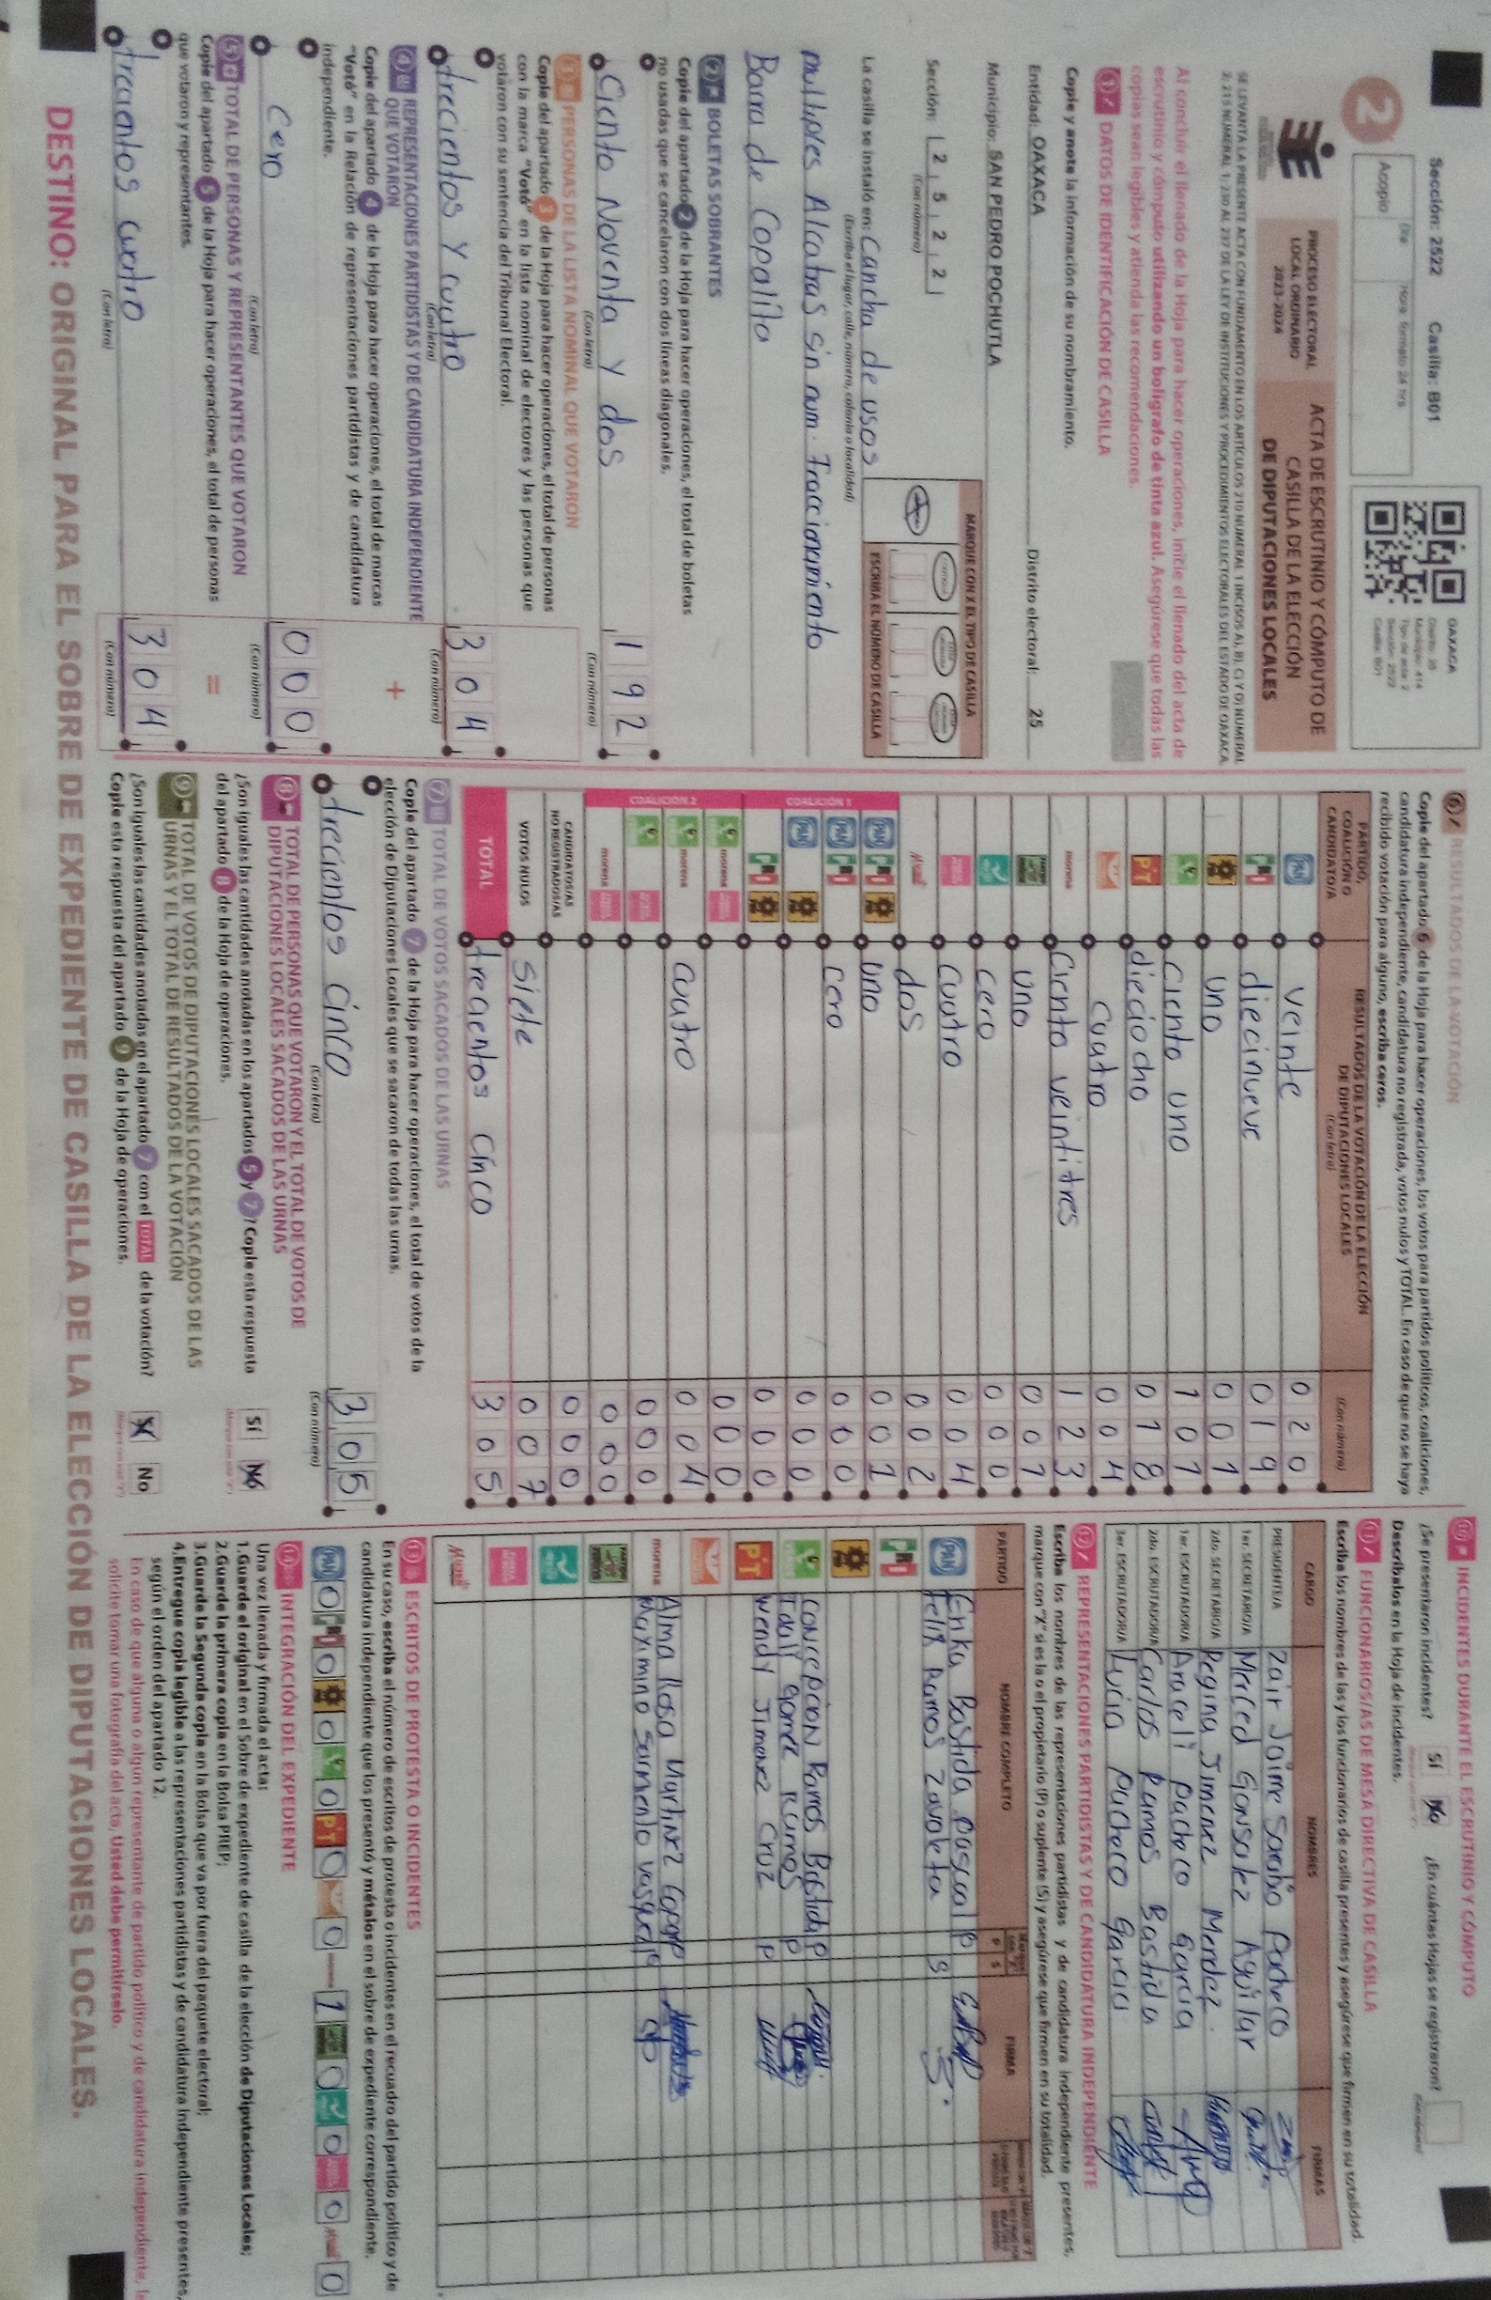 Sección: 2522 Casilla: B01
Acopio
Día
Hora formato 24 hrs
OAXACA
Distrito: 25
Municipio: 414
Tipo de acta: 2
Sección: 2522
Casilla: B01
2
PROCESO ELECTORAL
LOCAL ORDINARIO
2023-2024
ACTA DE ESCRUTINIO Y CÓMPUTO DE
CASILLA DE LA ELECCIÓN
DE DIPUTACIONES LOCALES
SE LEVANTA LA PRESENTE ACTA CON FUNDAMENTO EN LOS ARTÍCULOS 210 NUMERAL 1 INCISOS A), B), C) Y D) NUMERAL
2; 215 NUMERAL 1; 230 AL 237 DE LA LEY DE INSTITUCIONES Y PROCEDIMIENTOS ELECTORALES DEL ESTADO DE OAXACA.
Al concluir el llenado de la Hoja para hacer operaciones, inicie el llenado del acta de
escrutinio y cómputo utilizando un bolígrafo de tinta azul. Asegúrese que todas las
copias sean legibles y atienda las recomendaciones.
1 DATOS DE IDENTIFICACIÓN DE CASILLA
Copie y anote la información de su nombramiento.
Entidad: OAXACA Distrito electoral: 25
Municipio: SAN PEDRO POCHUTLA
Sección: 2 5 2 2
(Con número)
MARQUE CON X EL TIPO DE CASILLA
ESCRIBA EL NÚMERO DE CASILLA
La casilla se instaló en: Cancha de usos
(Escriba el lugar, calle, número, colonia o localidad)
multiples Alcatras sin num. Fraccionamiento
Barra de Copalita
2 BOLETAS SOBRANTES
Copie del apartado 2 de la Hoja para hacer operaciones, el total de boletas
no usadas que se cancelaron con dos líneas diagonales.
Ciento Noventa y dos 1 9 2
(Con letra) (Con número)
3 PERSONAS DE LA LISTA NOMINAL QUE VOTARON
Copie del apartado 3 de la Hoja para hacer operaciones, el total de personas
con la marca "Votó" en la lista nominal de electores y las personas que
votaron con su sentencia del Tribunal Electoral.
trecientos y cuatro 3 0 4
(Con letra) (Con número)
4 REPRESENTACIONES PARTIDISTAS Y DE CANDIDATURA INDEPENDIENTE
QUE VOTARON
+
Copie del apartado 4 de la Hoja para hacer operaciones, el total de marcas
"Votó" en la Relación de representaciones partidistas y de candidatura
independiente.
Cero 0 0 0
(Con letra) (Con número)
5 TOTAL DE PERSONAS Y REPRESENTANTES QUE VOTARON
=
Copie del apartado 5 de la Hoja para hacer operaciones, el total de personas
que votaron y representantes.
trecientos cuatro 3 0 4
(Con letra) (Con número)
6 RESULTADOS DE LA VOTACIÓN
Copie del apartado 6 de la Hoja para hacer operaciones, los votos para partidos políticos, coaliciones,
candidatura independiente, candidatura no registrada, votos nulos y TOTAL. En caso de que no se haya
recibido votación para alguno, escriba ceros.
PARTIDO,
COALICIÓN O
CANDIDATO/A
RESULTADOS DE LA VOTACIÓN DE LA ELECCIÓN
DE DIPUTACIONES LOCALES
(Con letra)
(Con número)
PAN veinte 0 2 0
PRI diecinueve 0 1 9
PRD uno 0 0 1
VERDE ciento uno 1 0 1
PT dieciocho 0 1 8
cuatro 0 0 4
morena Ciento veintitres 1 2 3
uno 0 0 1
cero 0 0 0
cuatro 0 0 4
Mujer dos 0 0 2
COALICIÓN 1
PAN PRI PRD uno 0 0 1
PAN PRI cero 0 0 0
PAN PRD 0 0 0
PRI PRD 0 0 0
COALICIÓN 2
VERDE morena 0 0 0
VERDE morena cuatro 0 0 4
VERDE 0 0 0
morena 0 0 0
CANDIDATOS/AS
NO REGISTRADOS/AS 0 0 0
VOTOS NULOS siete 0 0 7
TOTAL trecientos cinco 3 0 5
7 TOTAL DE VOTOS SACADOS DE LAS URNAS
Copie del apartado 7 de la Hoja para hacer operaciones, el total de votos de la
elección de Diputaciones Locales que se sacaron de todas las urnas.
trecientos cinco 3 0 5
(Con letra) (Con número)
8 TOTAL DE PERSONAS QUE VOTARON Y EL TOTAL DE VOTOS DE
DIPUTACIONES LOCALES SACADOS DE LAS URNAS
¿Son iguales las cantidades anotadas en los apartados 5 y 7? Copie esta respuesta
del apartado 8 de la Hoja de operaciones.
Sí No
9 TOTAL DE VOTOS DE DIPUTACIONES LOCALES SACADOS DE LAS
URNAS Y EL TOTAL DE RESULTADOS DE LA VOTACIÓN
¿Son iguales las cantidades anotadas en el apartado 7 con el TOTAL de la votación?
Copie esta respuesta del apartado 9 de la Hoja de operaciones.
Sí No
10 INCIDENTES DURANTE EL ESCRUTINIO Y CÓMPUTO
¿Se presentaron incidentes? Sí No ¿En cuántas Hojas se registraron?
(Con número)
Descríbalos en la Hoja de incidentes.
11 FUNCIONARIOS/AS DE MESA DIRECTIVA DE CASILLA
Escriba los nombres de las y los funcionarios de casilla presentes y asegúrese que firmen en su totalidad.
CARGO NOMBRES FIRMAS
PRESIDENTE/A Zair Jaime Sarabio Pacheco
1er. SECRETARIO/A Merced Gonsalez Aguilar
2do. SECRETARIO/A Regina Jimenez Mendez
1er. ESCRUTADOR/A Araceli pacheco Garcia
2do. ESCRUTADOR/A Carlos Ramos Bastida
3er. ESCRUTADOR/A Lucia pacheco Garcia
12 REPRESENTACIONES PARTIDISTAS Y DE CANDIDATURA INDEPENDIENTE
Escriba los nombres de las representaciones partidistas y de candidatura independiente presentes,
marque con "X" si es la o el propietario (P) o suplente (S) y asegúrese que firmen en su totalidad.
PARTIDO NOMBRE COMPLETO P S FIRMA
PAN Erika Bastida pascual P
Felix Ramos Zavaleta S
PRI
PRD
VERDE concepcion Ramos Bastida P
Idaly Gomez Ramos P
PT wendy Jimenez Cruz P
morena Alma Rosa Martinez P
Maymino Sarmento Vasquez
Mujer
13 ESCRITOS DE PROTESTA O INCIDENTES
En su caso, escriba el número de escritos de protesta o incidentes en el recuadro del partido político y de
candidatura independiente que los presentó y métalos en el sobre de expediente correspondiente.
PAN 0 PRI 0 PRD 0 VERDE 0 PT 0 0 morena 1 0 0 0 Mujer 0
14 INTEGRACIÓN DEL EXPEDIENTE
Una vez llenada y firmada el acta:
1.Guarde el original en el Sobre de expediente de casilla de la elección de Diputaciones Locales;
2.Guarde la primera copia en la Bolsa PREP;
3.Guarde la Segunda copia en la Bolsa que va por fuera del paquete electoral;
4.Entregue copia legible a las representaciones partidistas y de candidatura independiente presentes,
según el orden del apartado 12.
En caso de que alguna o algún representante de partido político y de candidatura independiente, le
solicite tomar una fotografía del acta, Usted debe permitírselo.
DESTINO: ORIGINAL PARA EL SOBRE DE EXPEDIENTE DE CASILLA DE LA ELECCIÓN DE DIPUTACIONES LOCALES.